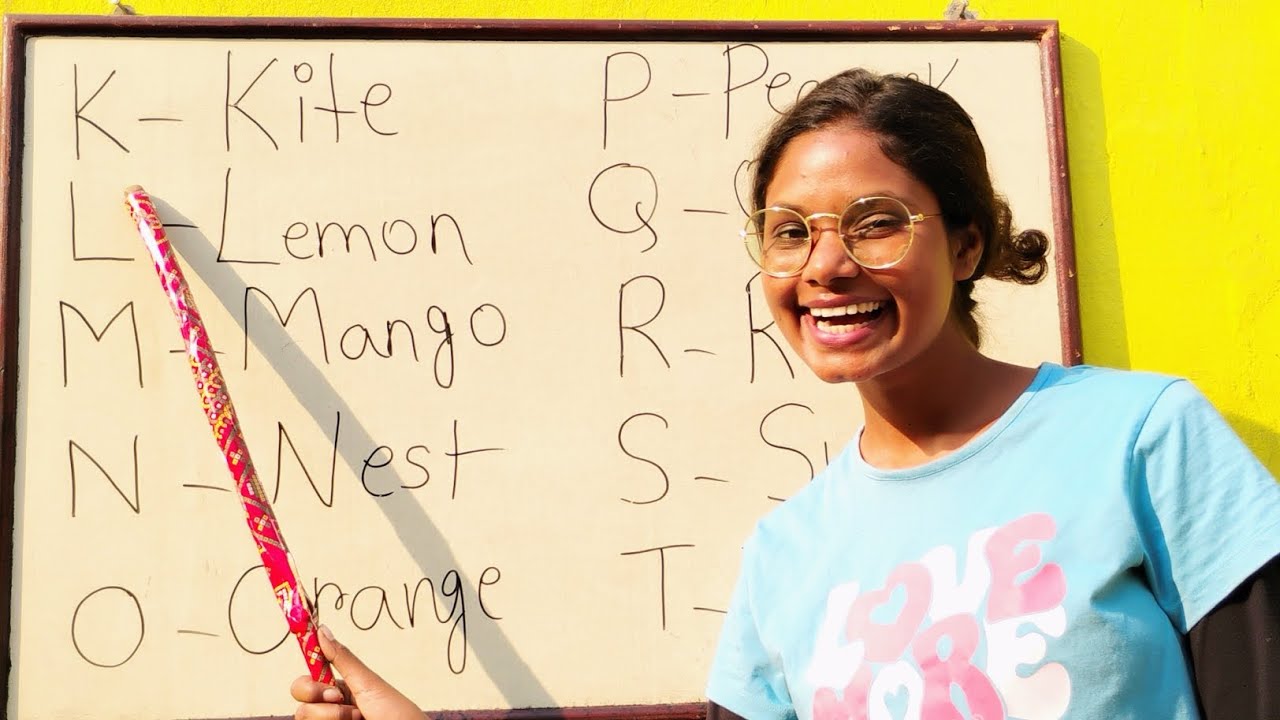 K - Kite
L - Lemon
M - Mango
N - Nest
O - Orange
P -
Q -
R -
S -
T -
LOVE
MORE